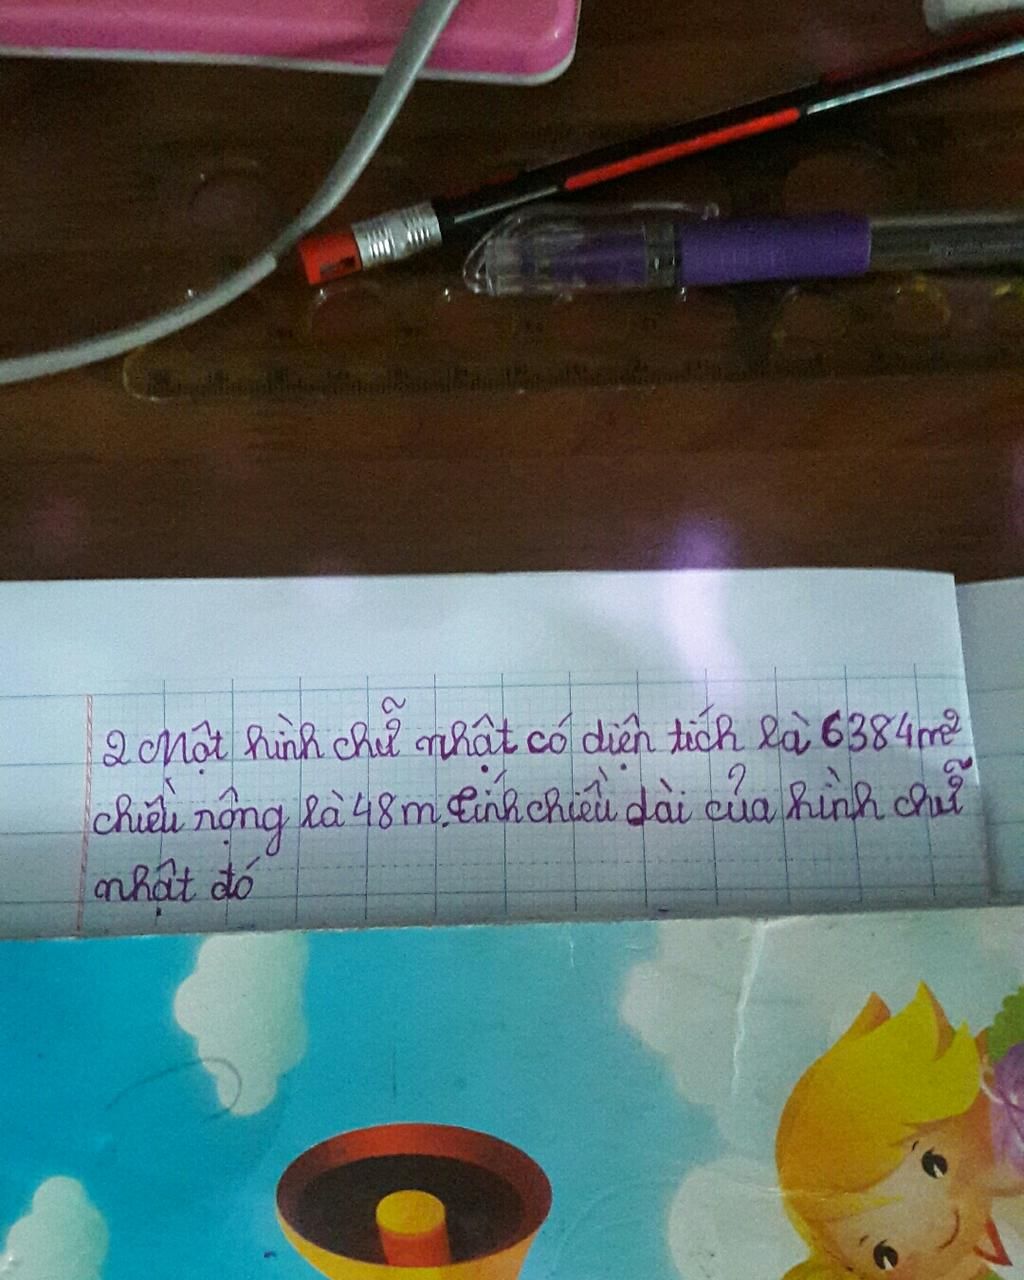 2 Một hình chữ nhật có diện tích là 6384m²
chiều rộng là 48m. Tính chiều dài của hình chữ
nhật đó